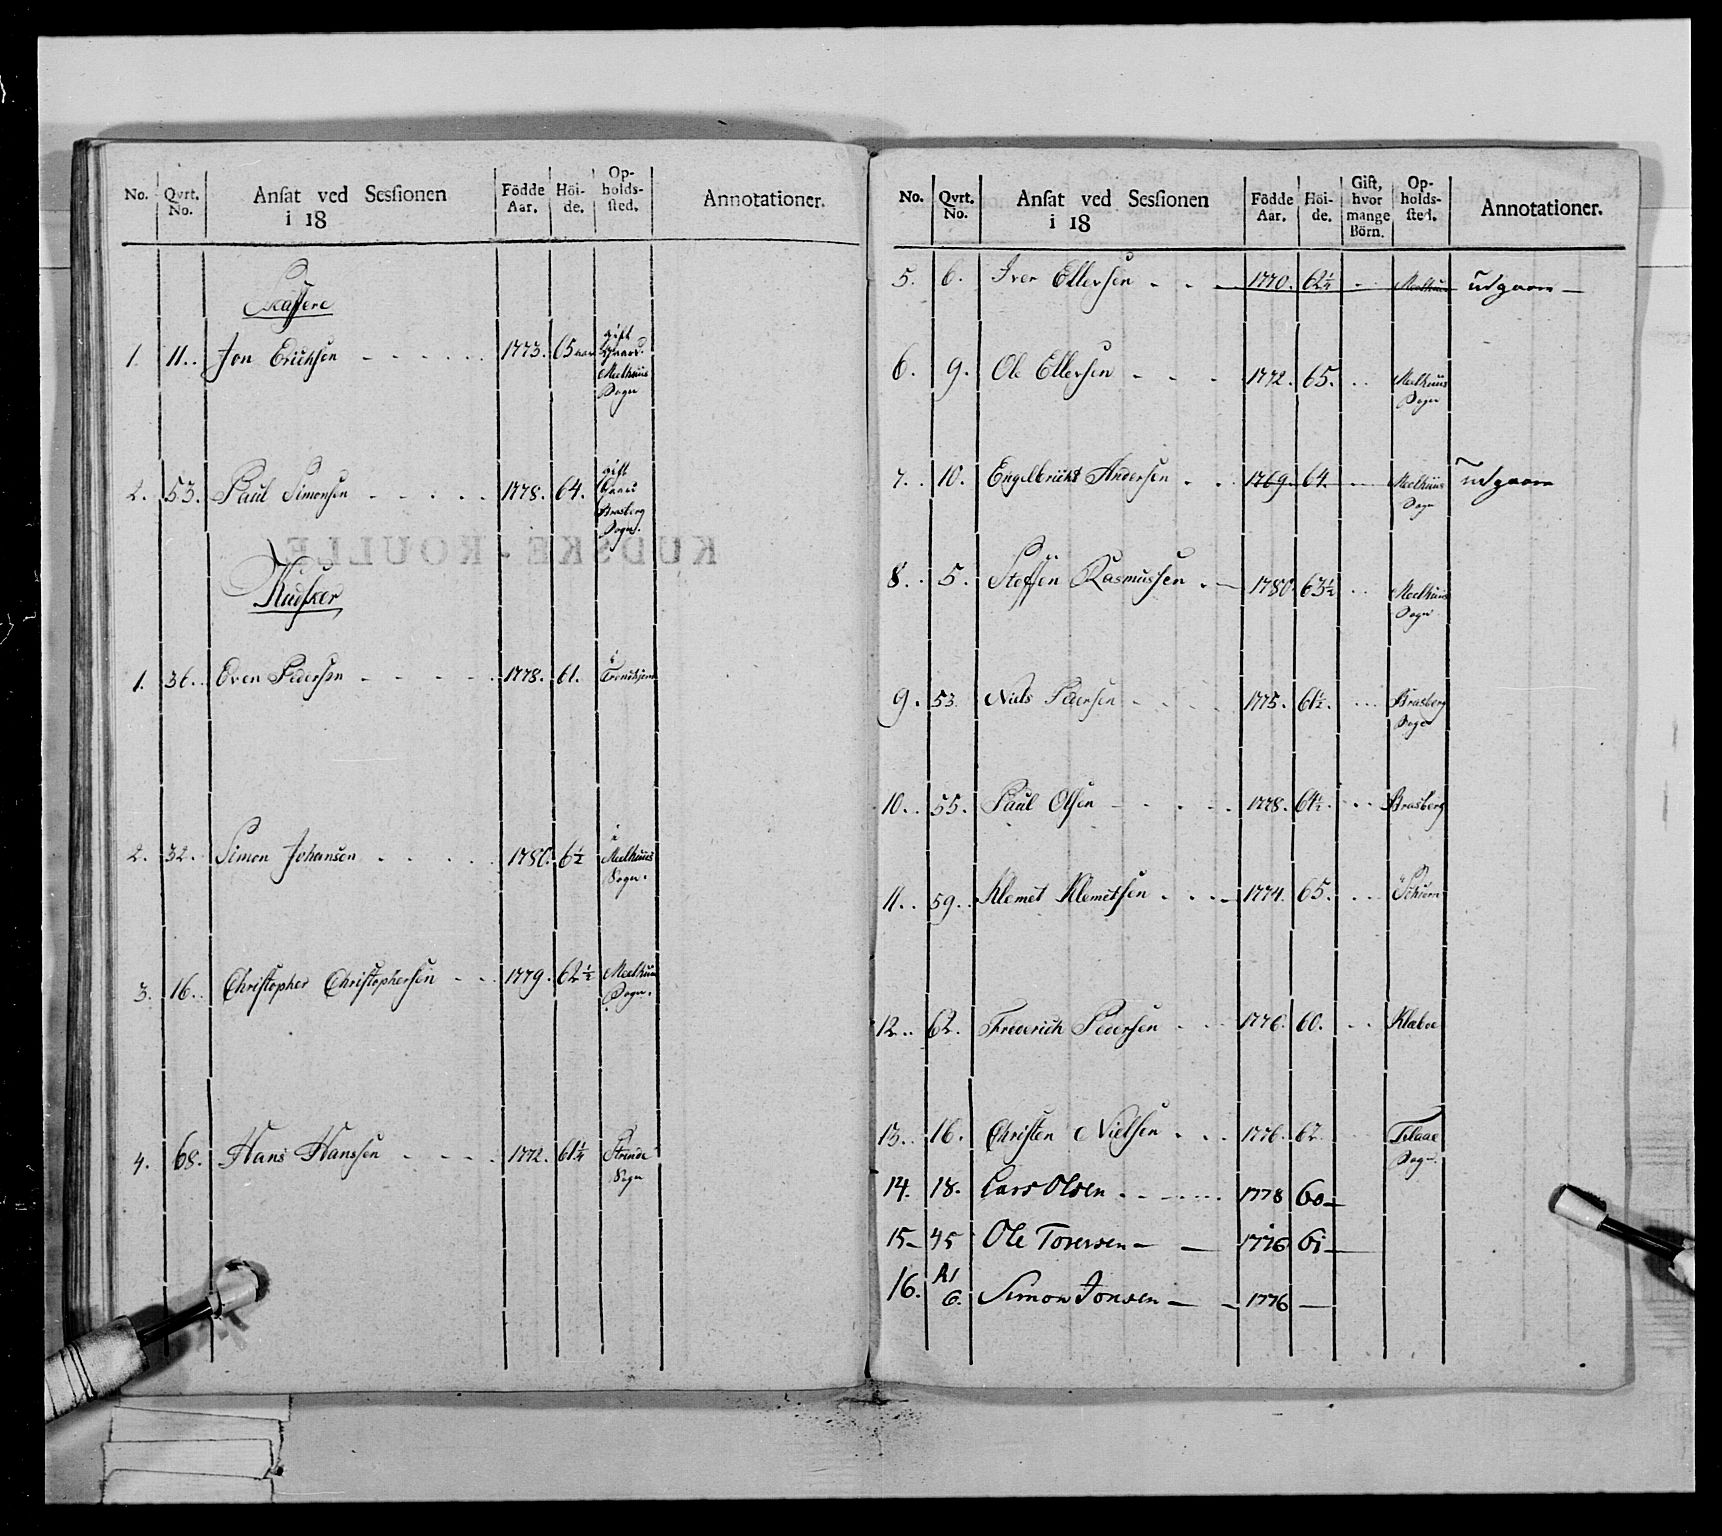 No. Qvrt. No. Ansat ved Sessionen i 18 Födde Aar. Höi-de. Op-holds-sted. Annotationer.
Skaffere
1. 11. Jon Erichsen 1773. 65 gift
Meelhuus
Sogn
2. 53. Paul Simonsen 1778. 64. gift
Brasberg
Sogn.
KUDSKE-ROULLE
Kudsker
1. 36. Even Pedersen 1778. 61. i
Trondhjem
2. 32. Simon Johansen 1780. 6½ i
Meelhuus
Sogn.
3. 16. Christopher Christophersen 1779. 62½ Meelhuus
Sogn.
4. 68. Hans Hanssen 1772. 61¼ Strinde
Sogn
No. Qvrt. No. Ansat ved Sessionen i 18 Födde Aar. Höi-de. Gift, hvor mange Börn. Op-holds-sted. Annotationer.
5. 6. Iver Ellersen 1770. 62½ Meelhuus udgaaen
6. 9. Ole Ellersen 1772. 65. Meelhuus
Sogn
7. 10. Engelbricht Andersen 1769. 64. Meelhuus udgaaen
Sogn
8. 5. Steffen Rasmussen 1780. 63½ Meelhuus
Sogn
9. 53. Niels Pedersen 1775. 61½. Brasberg
Sogn
10. 55. Paul Olsen 1778. 64½. Brasberg
11. 59. Klemet Klemetsen 1774. 65.
12. 62. Frederich Pedersen 1776. 60. Klæboe
13. 16. Christen Nielsen 1776. 62.
Sogn.
14. 18. Lars Olsen 1778 60
15 45 Ole Toresen 1776 61
16. R1 6. Simon Jonsen 1776